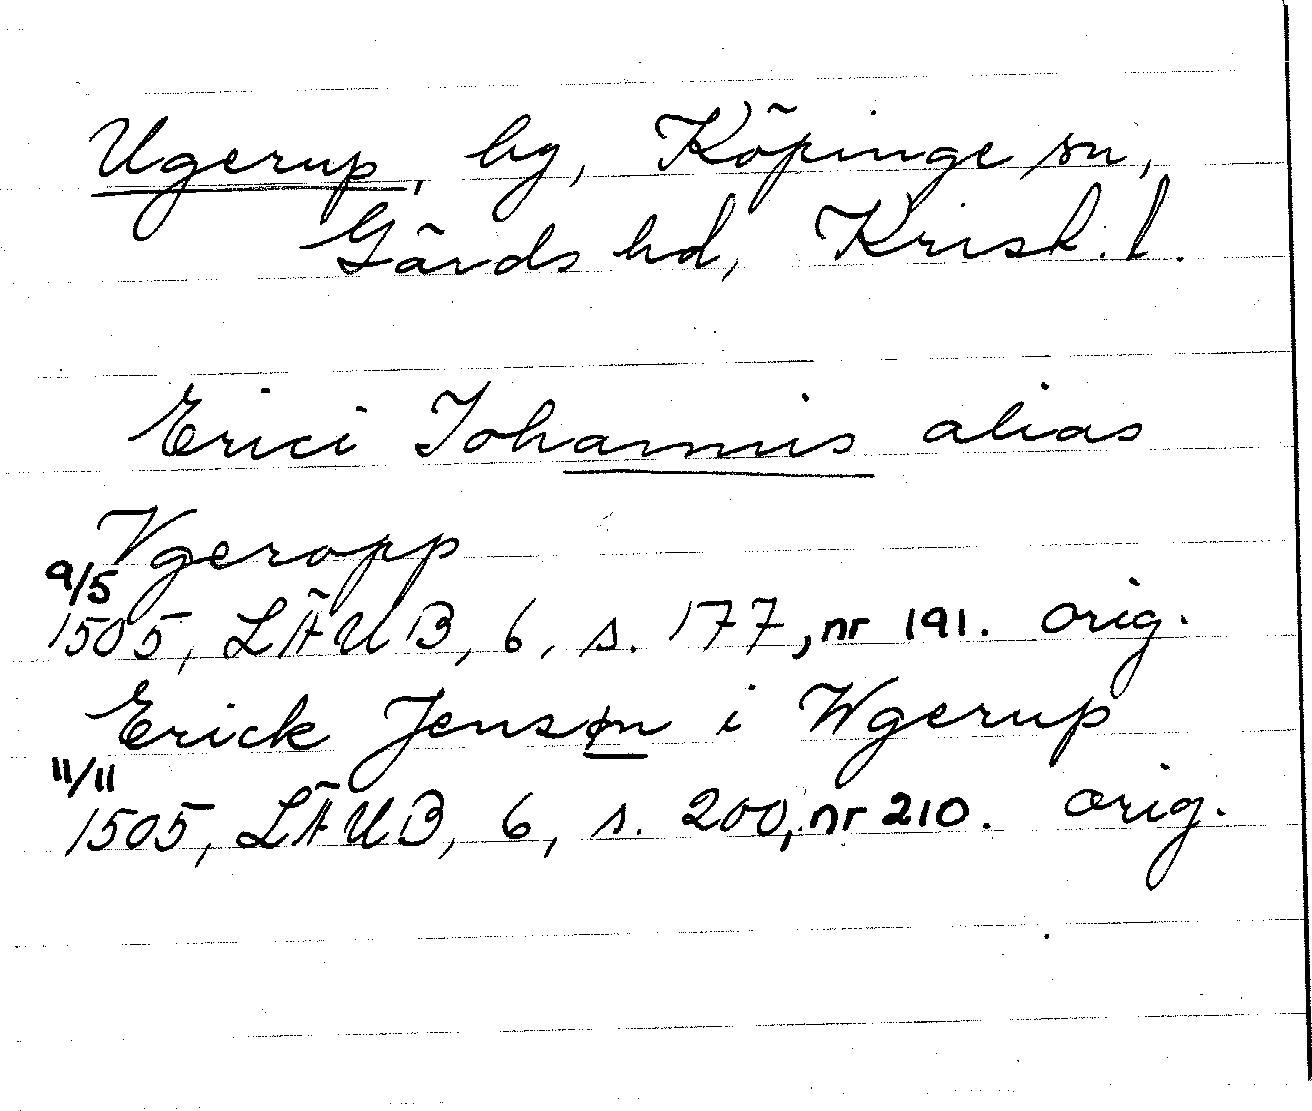 Ugerup, by, Köpinge sn,
Gärds hd, Krist. l.
Erici Johannis alias
Vgeropp
9/5
1505, LÄUB, 6, s. 177, nr 191. orig.
Erick Jensøn i Wgerup
11/11
1505, LÄUB, 6, s. 200, nr 210. orig.